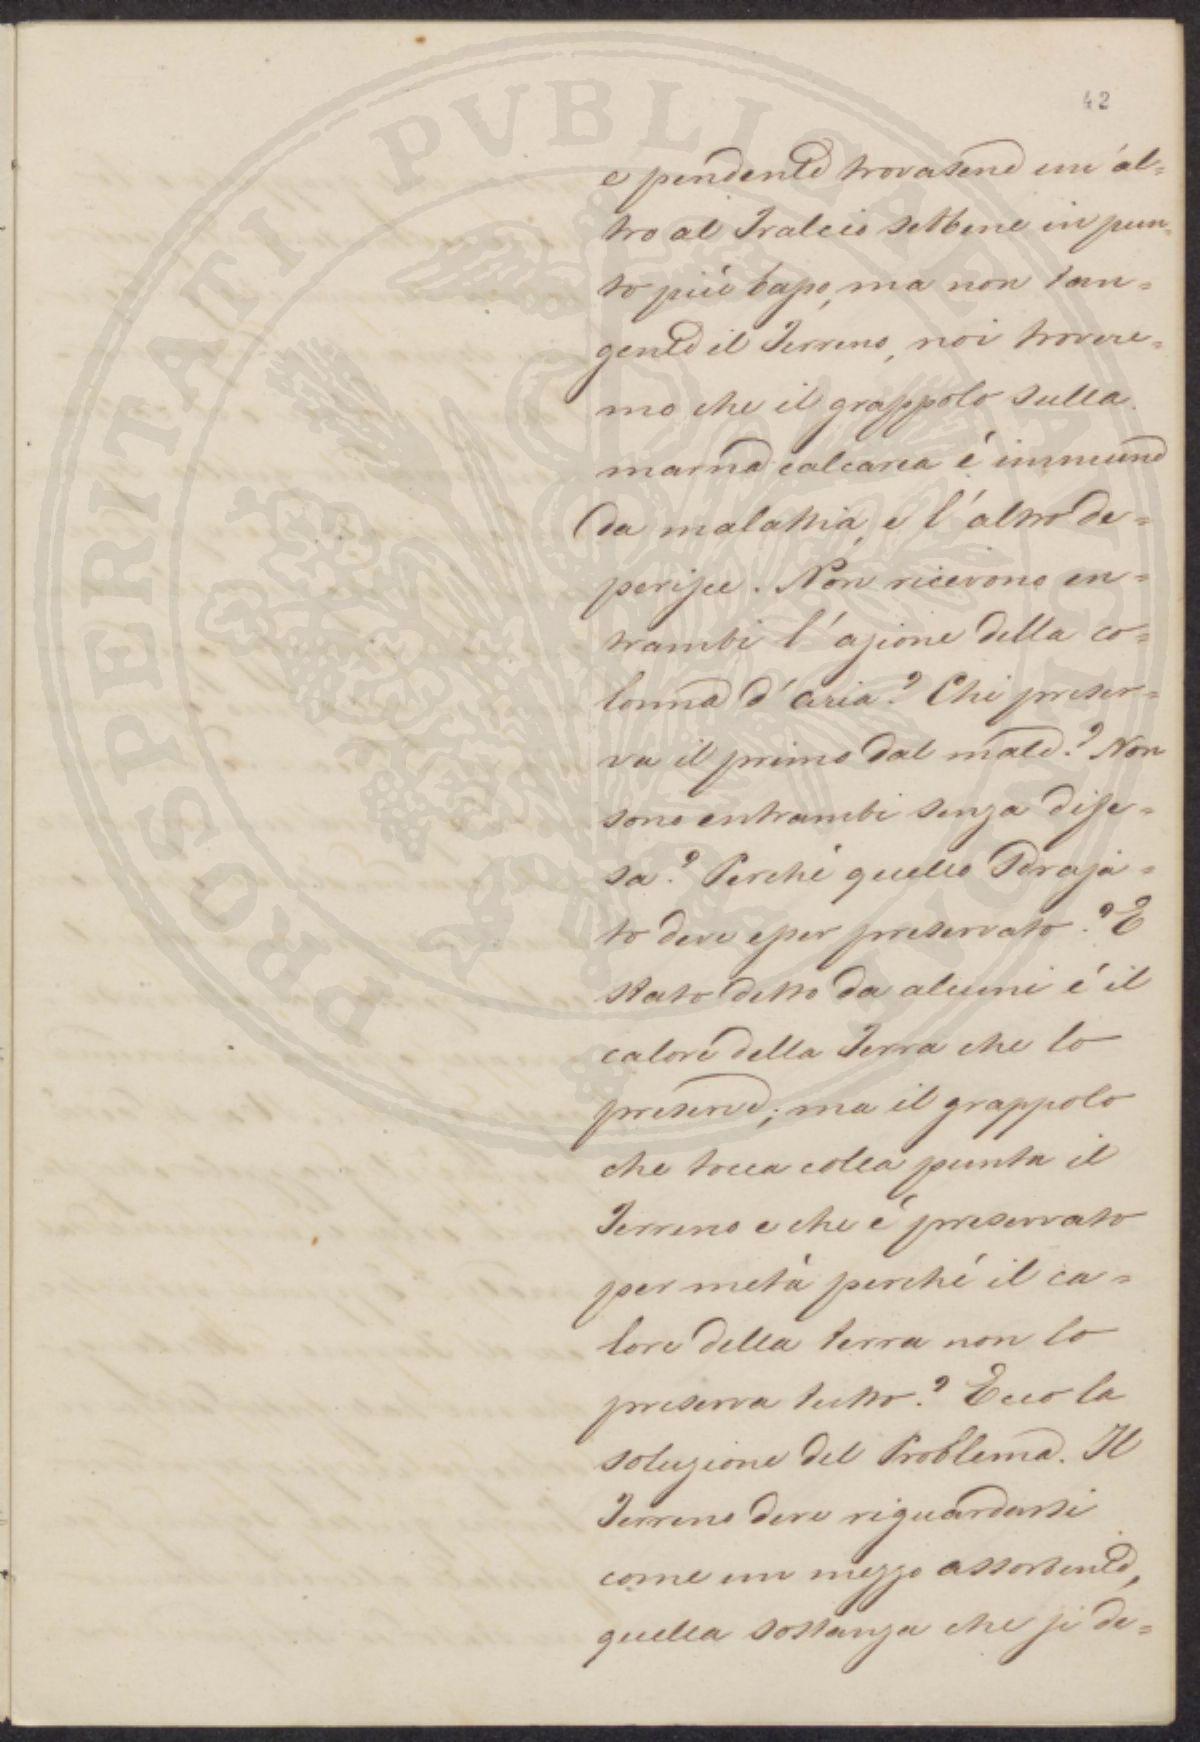 42
e pendente trovasene un'al=
tro al Tralcio sebbene in pun=
to più basso, ma non tan=
gente il Terreno, noi trovere=
mo che il grappolo sulla
marna calcarea é immune
da malattia, e l'altro de=
perisce. Non ricevono en=
trambi l'azione della co=
lonna d'aria? Chi preser=
va il primo dal male? Non
sono entrambi senza dife=
sa? Perché quello Sdraja=
to deve esser preservato? E
stato detto da alcuni é il
calore della Terra che lo
preserve; ma il grappolo
che tocca colla punta il
Terreno e che é preservato
per metà perché il ca=
lore della terra non lo
preserva tutto? Ecco la
soluzione del Problema. Il
Terreno deve riguardarsi
come un mezzo assorbente,
quella sostanza che si de=
PROSPERITATI PVBLICAE